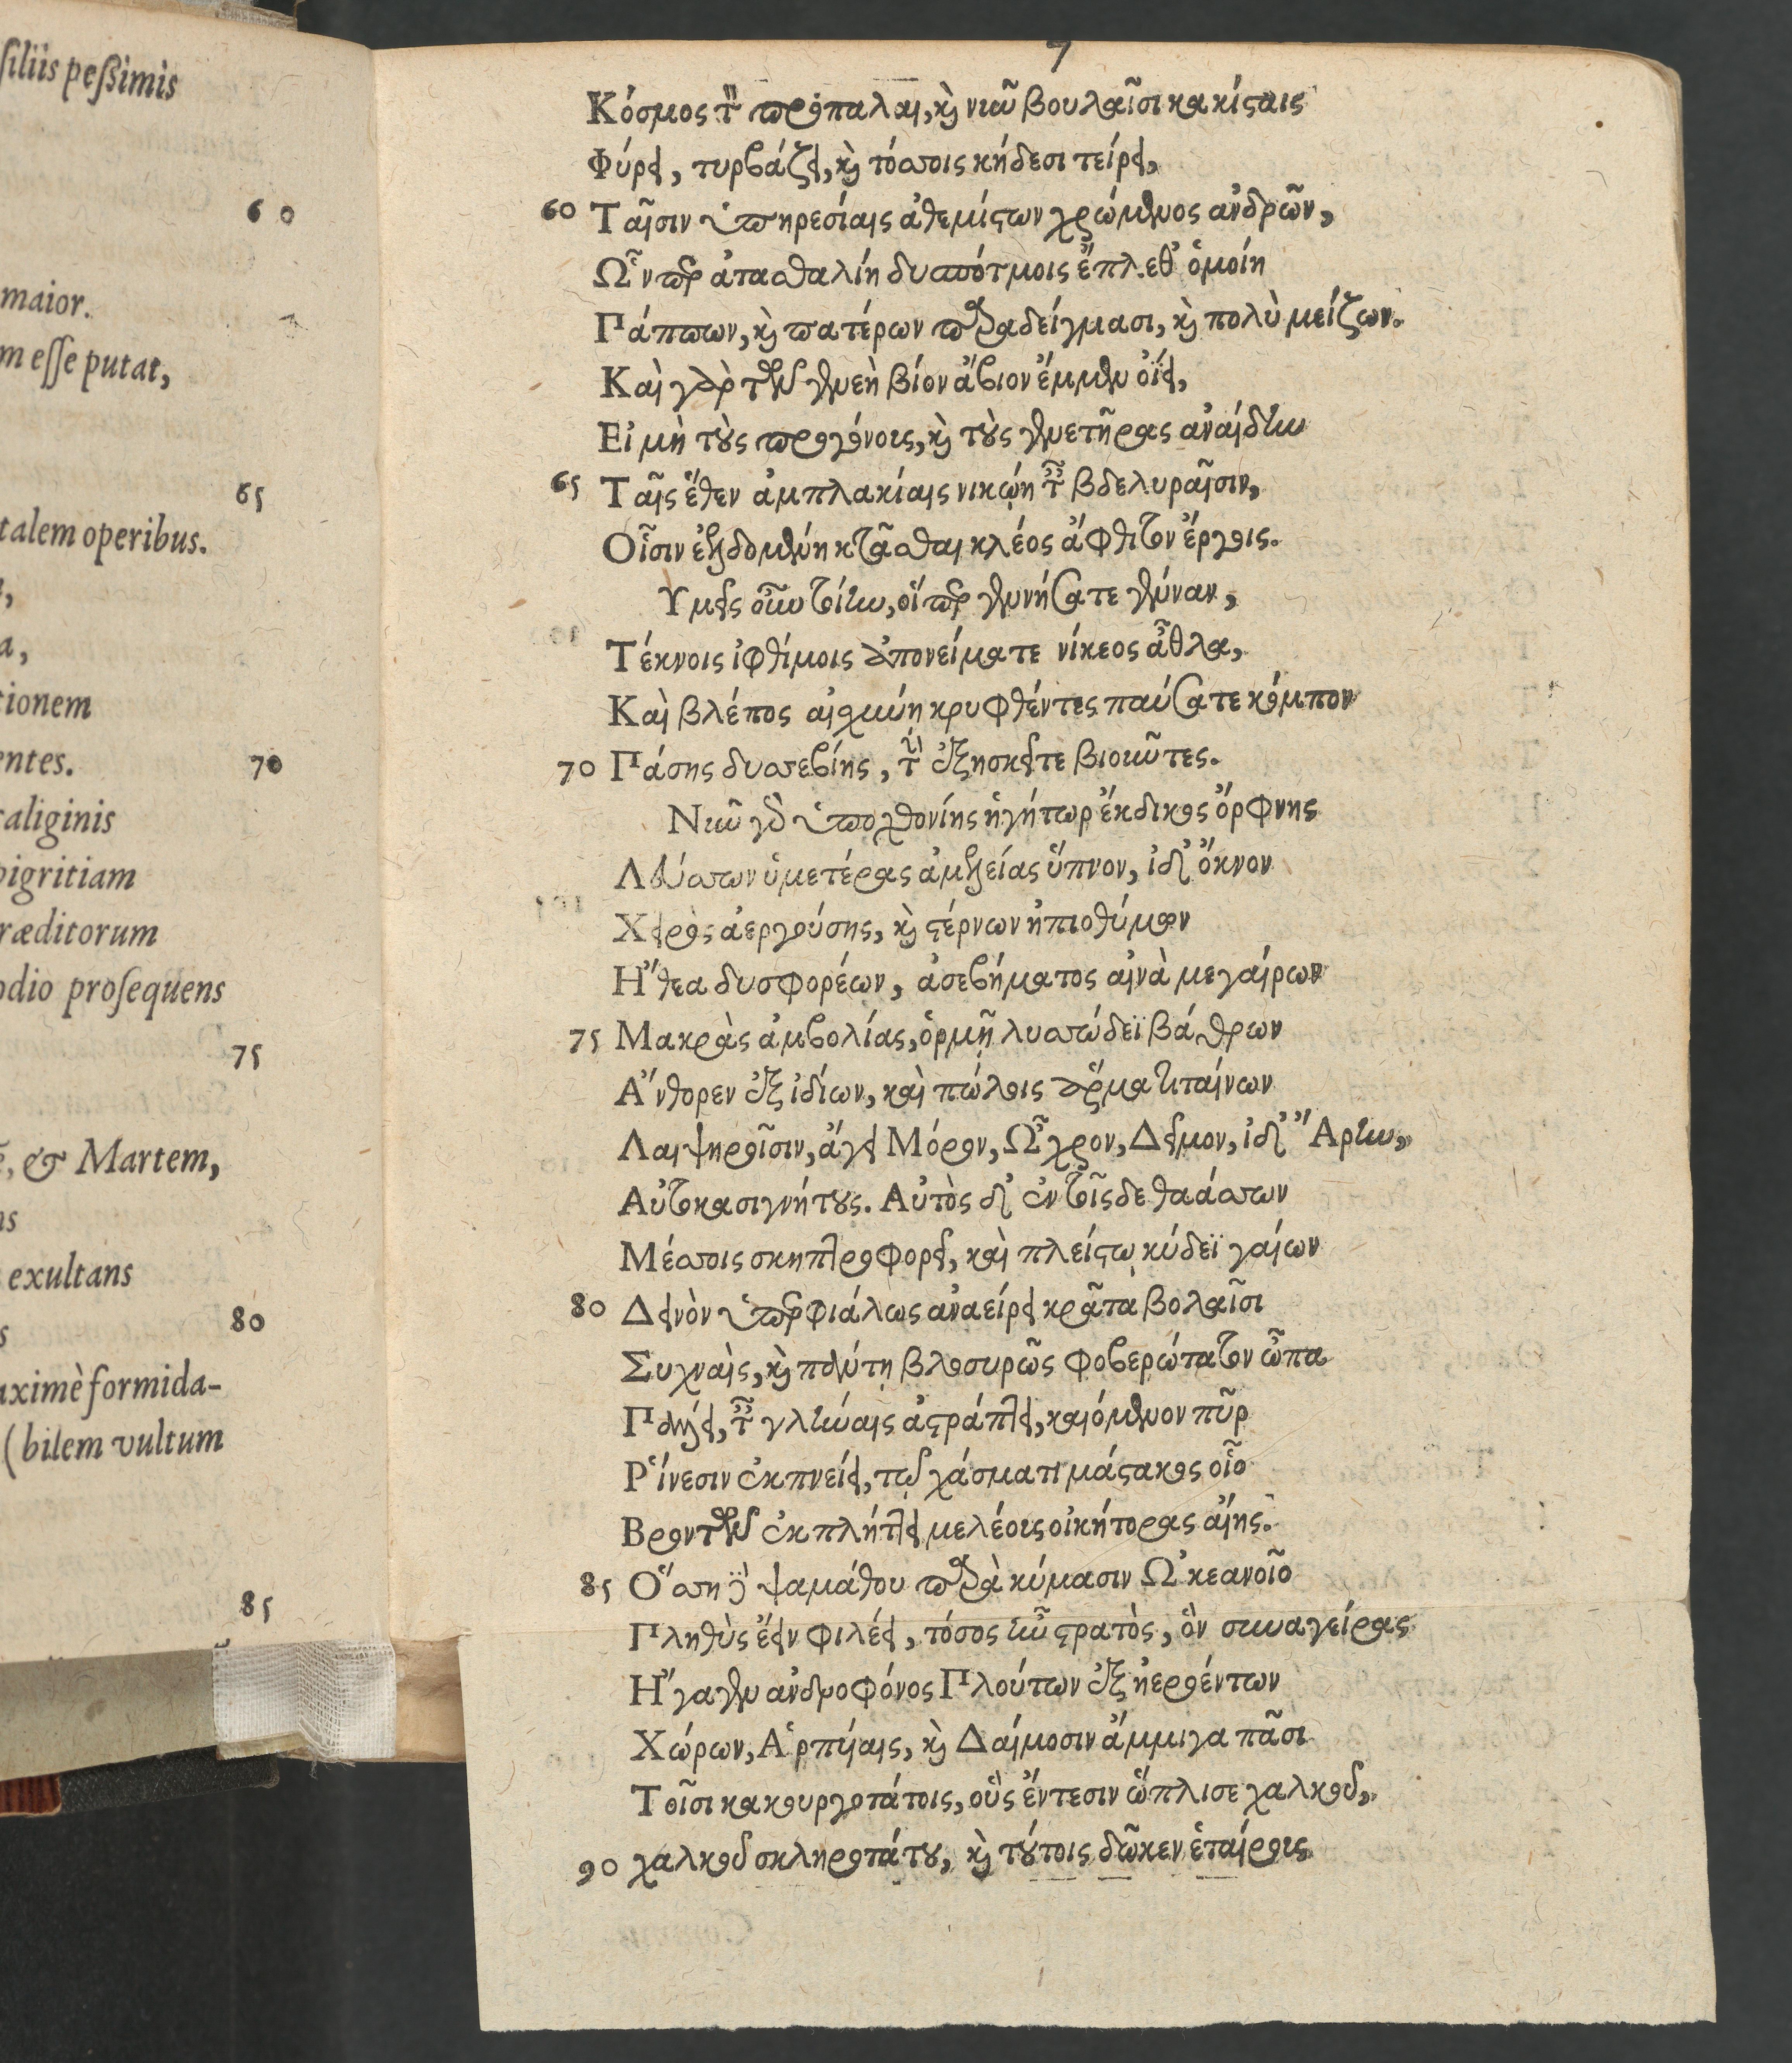 siliis pessimis
60
maior.
m esse putat,
65
talem operibus.
a,
tionem
entes.
70
caliginis
pigritiam
ræditorum
odio prosequens
75
, & Martem,
ns
exultans
80
s
aximè formida-
(bilem vultum
85
7
Κόσμος τὸν πρόπαλαι, καὶ νῦν βουλαῖσι κακίσταις
Φύρει, τυρβάζει, καὶ τόσσοις κήδεσι τείρει,
60 Ταῖσιν ὑπηρεσίαις ἀθεμίστων χρώμενος ἀνδρῶν,
Ὧν περ ἀτασθαλίη δυσπότμοις ἔπλεθ' ὁμοίη
Πάππων, καὶ πατέρων παραδείγμασι, καὶ πολὺ μείζων.
Καὶ γὰρ τὴν γενεὴ βίον ἄβιον ἔμμεν οἴει,
Εἰ μὴ τοὺς προγόνους, καὶ τοὺς γενετῆρας ἀναίδην
65 Ταῖς ἕθεν ἀμπλακίαις νικῴη τῶν βδελυραῖσιν,
Οἷσιν ἐελδομένη κτᾶσθαι κλέος ἄφθιτον ἔργοις.
Υμεῖς οὖν τοίνυν, οἵπερ γεννήσατε γένναν,
Τέκνοις ἰφθίμοις ἀπονείματε νίκεος ἆθλα,
Καὶ βλέπος αἰσχύνῃ κρυφθέντες παύσατε κόμπον
70 Πάσης δυσσεβίης, τὴν ἐξησκεῖτε βιοῦντες.
Νῦν γὰρ ὑποχθονίης ἡγήτωρ ἔκδικος ὄρφνης
Λεύσσων ὑμετέρας ἀμελείας ὕπνον, ἰδ' ὄκνον
Χειρὸς ἀεργούσης, καὶ στέρνων ἠπιοθύμων
Ἤθεα δυσφορέων, ἀσεβήματος αἰνὰ μεγαίρων
75 Μακρὰς ἀμβολίας, ὁρμῇ λυσσώδεϊ βάθρων
Ἄνθορεν ἐξ ἰδίων, καὶ πώλοις ἅρμα τιταίνων
Λαιψηροῖσιν, ἄγει Μόρον, Ὦχρον, Δεῖμον, ἰδ' Ἄρην,
Αὐτοκασιγνήτους. Αὐτὸς δ' ἐν τοῖσδε θαάσσων
Μέσσοις σκηπτροφορεῖ, καὶ πλείστῳ κύδεϊ γαίων
80 Δεινὸν ὑπερφιάλως ἀναείρει κρᾶτα βολαῖσι
Συχναῖς, καὶ πολύτῃ βλοσυρῶς φοβερώτατον ὦπα
Ποιεῖ, τῶν γλήναις ἀστράπτει, καιόμενον πῦρ
Ῥίνεσιν ἐκπνείει, τῷ χάσματι μάστακος οἷο
Βροντῇ ἐκπλήττει μελέους οἰκήτορας αἴης.
85 Ὅσση δὲ ψαμάθου παρὰ κύμασιν Ὠκεανοῖο
Πληθὺς ἔειν φιλέει, τόσος ἦν στρατὸς, ὃν συναγείρας
Ἤγαγεν ἀνδροφόνος Πλούτων ἐξ ἠεροέντων
Χώρων, Ἁρπύιαις, καὶ Δαίμοσιν ἄμμιγα πᾶσι
Τοῖσι κακουργοτάτοις, οὓς ἔντεσιν ὥπλισε χαλκοῦ,
90 χαλκοῦ σκληροτάτου, καὶ τούτοις δῶκεν ἑταίροις